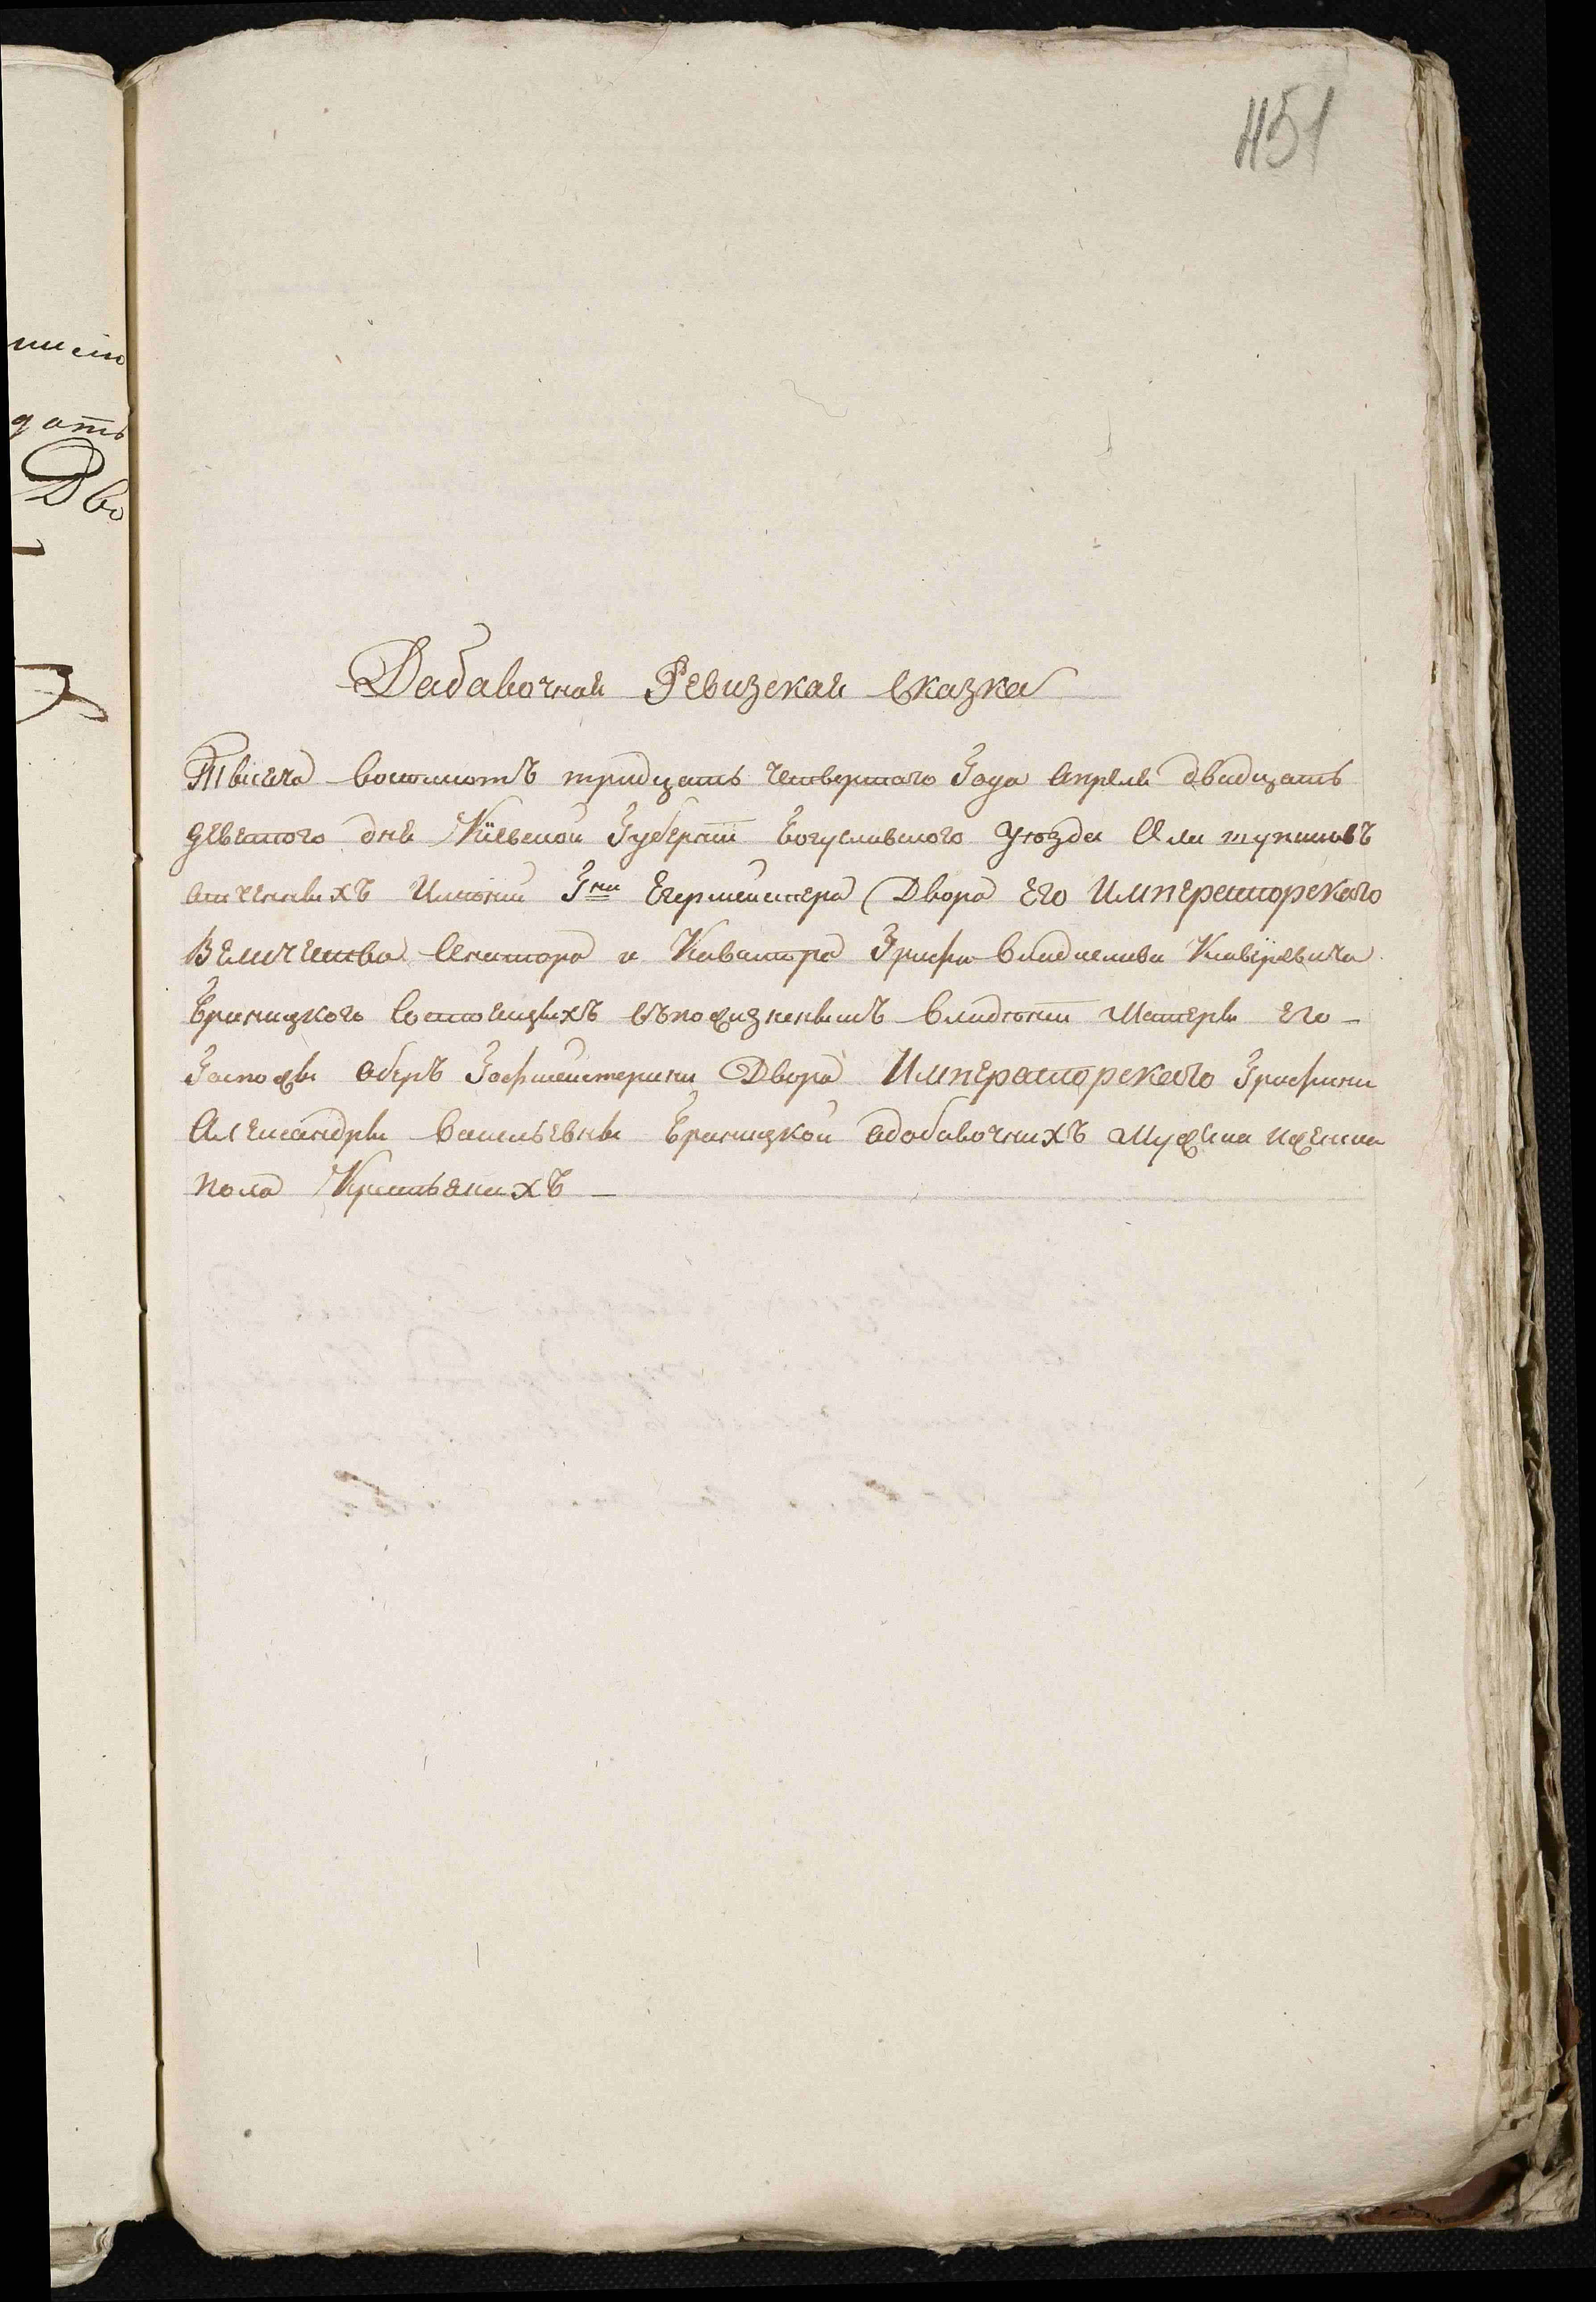 451
Дабавочная Ревизская Сказка
Тысяча восимсотъ тридцать Четвертаго Года Апреля двадцать
девятого дня Кіевской Губерніи Богуславского Уѣзда
Имѣнии Гна Егермейстера Двора Его Императорского
Величества Сенатора и Кавалера Графа Владислава Ксаверіевича
Браницкого Состоящихъ въ пожизненнымъ Владѣнии Матеры Его
Госпожы Оберъ Гофмейстерини Двора Императорского Графини
Александры Васильевны Браницкой одобавочнихъ мужска иженска
пола Крестьянихъ